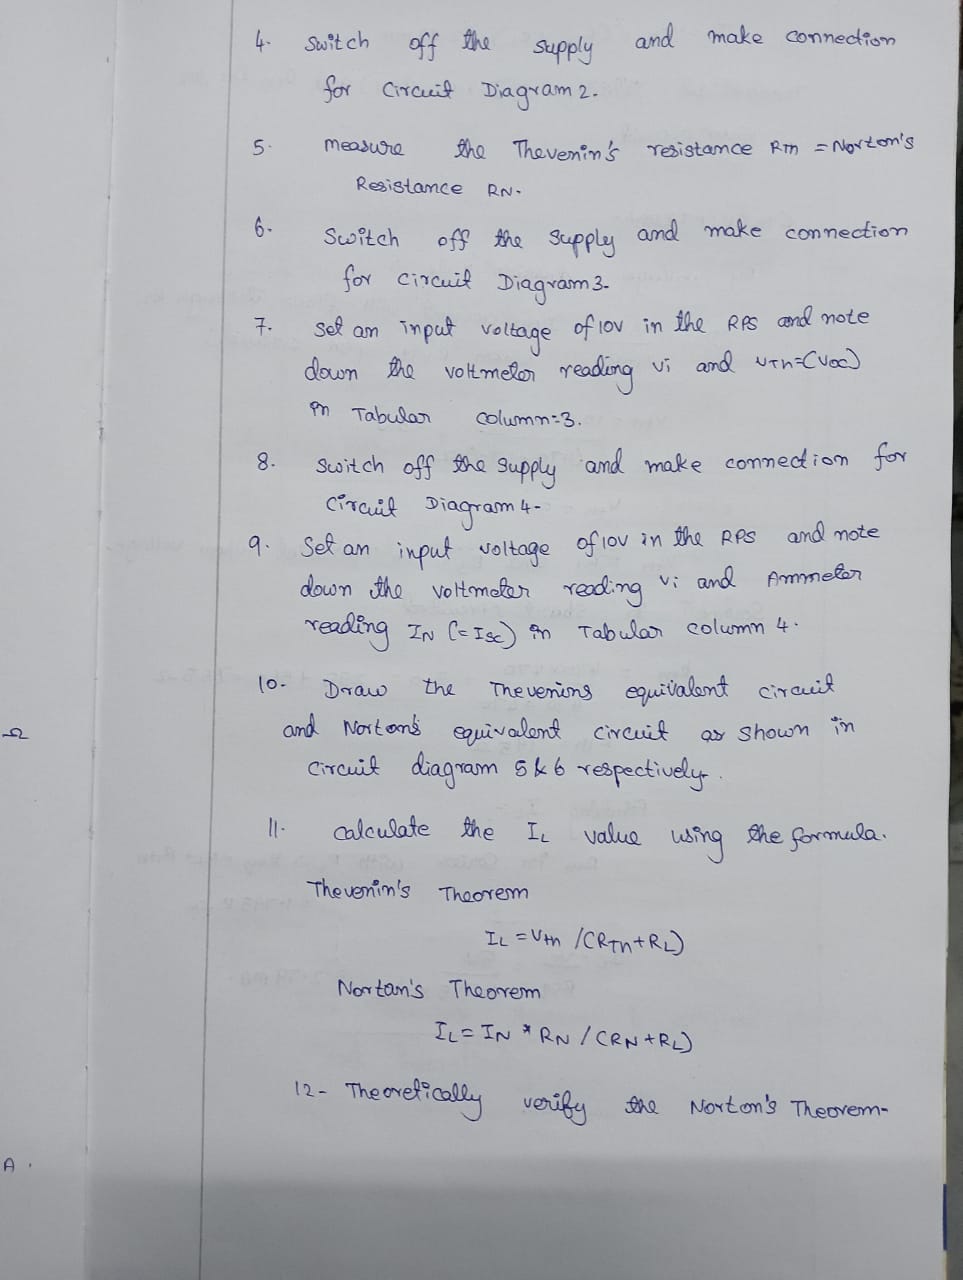 4. Switch off the supply and make connection
for Circuit Diagram 2.
5. measure the Thevenin's resistance RTh = Norton's
Resistance RN.
6. Switch off the supply and make connection
for circuit Diagram 3.
7. set an input voltage of 10V in the RPS and note
down the voltmeter reading vi and VTh=(Voc)
in Tabular column=3.
8. Switch off the supply and make connection for
Circuit Diagram 4-
9. Set an input voltage of 10V in the RPS and note
down the voltmeter reading vi and Ammeter
reading IN (= Isc) in Tabular column 4.
10. Draw the Thevenins equivalent circuit
and Norton's equivalent circuit as shown in
Ω
Circuit diagram 5 & 6 respectively.
11. calculate the IL value using the formula.
Thevenin's Theorem
IL = Vth /(RTh+RL)
Nortan's Theorem
IL = IN * RN / (RN +RL)
12- Theoretically verify the Norton's Theorem-
A.